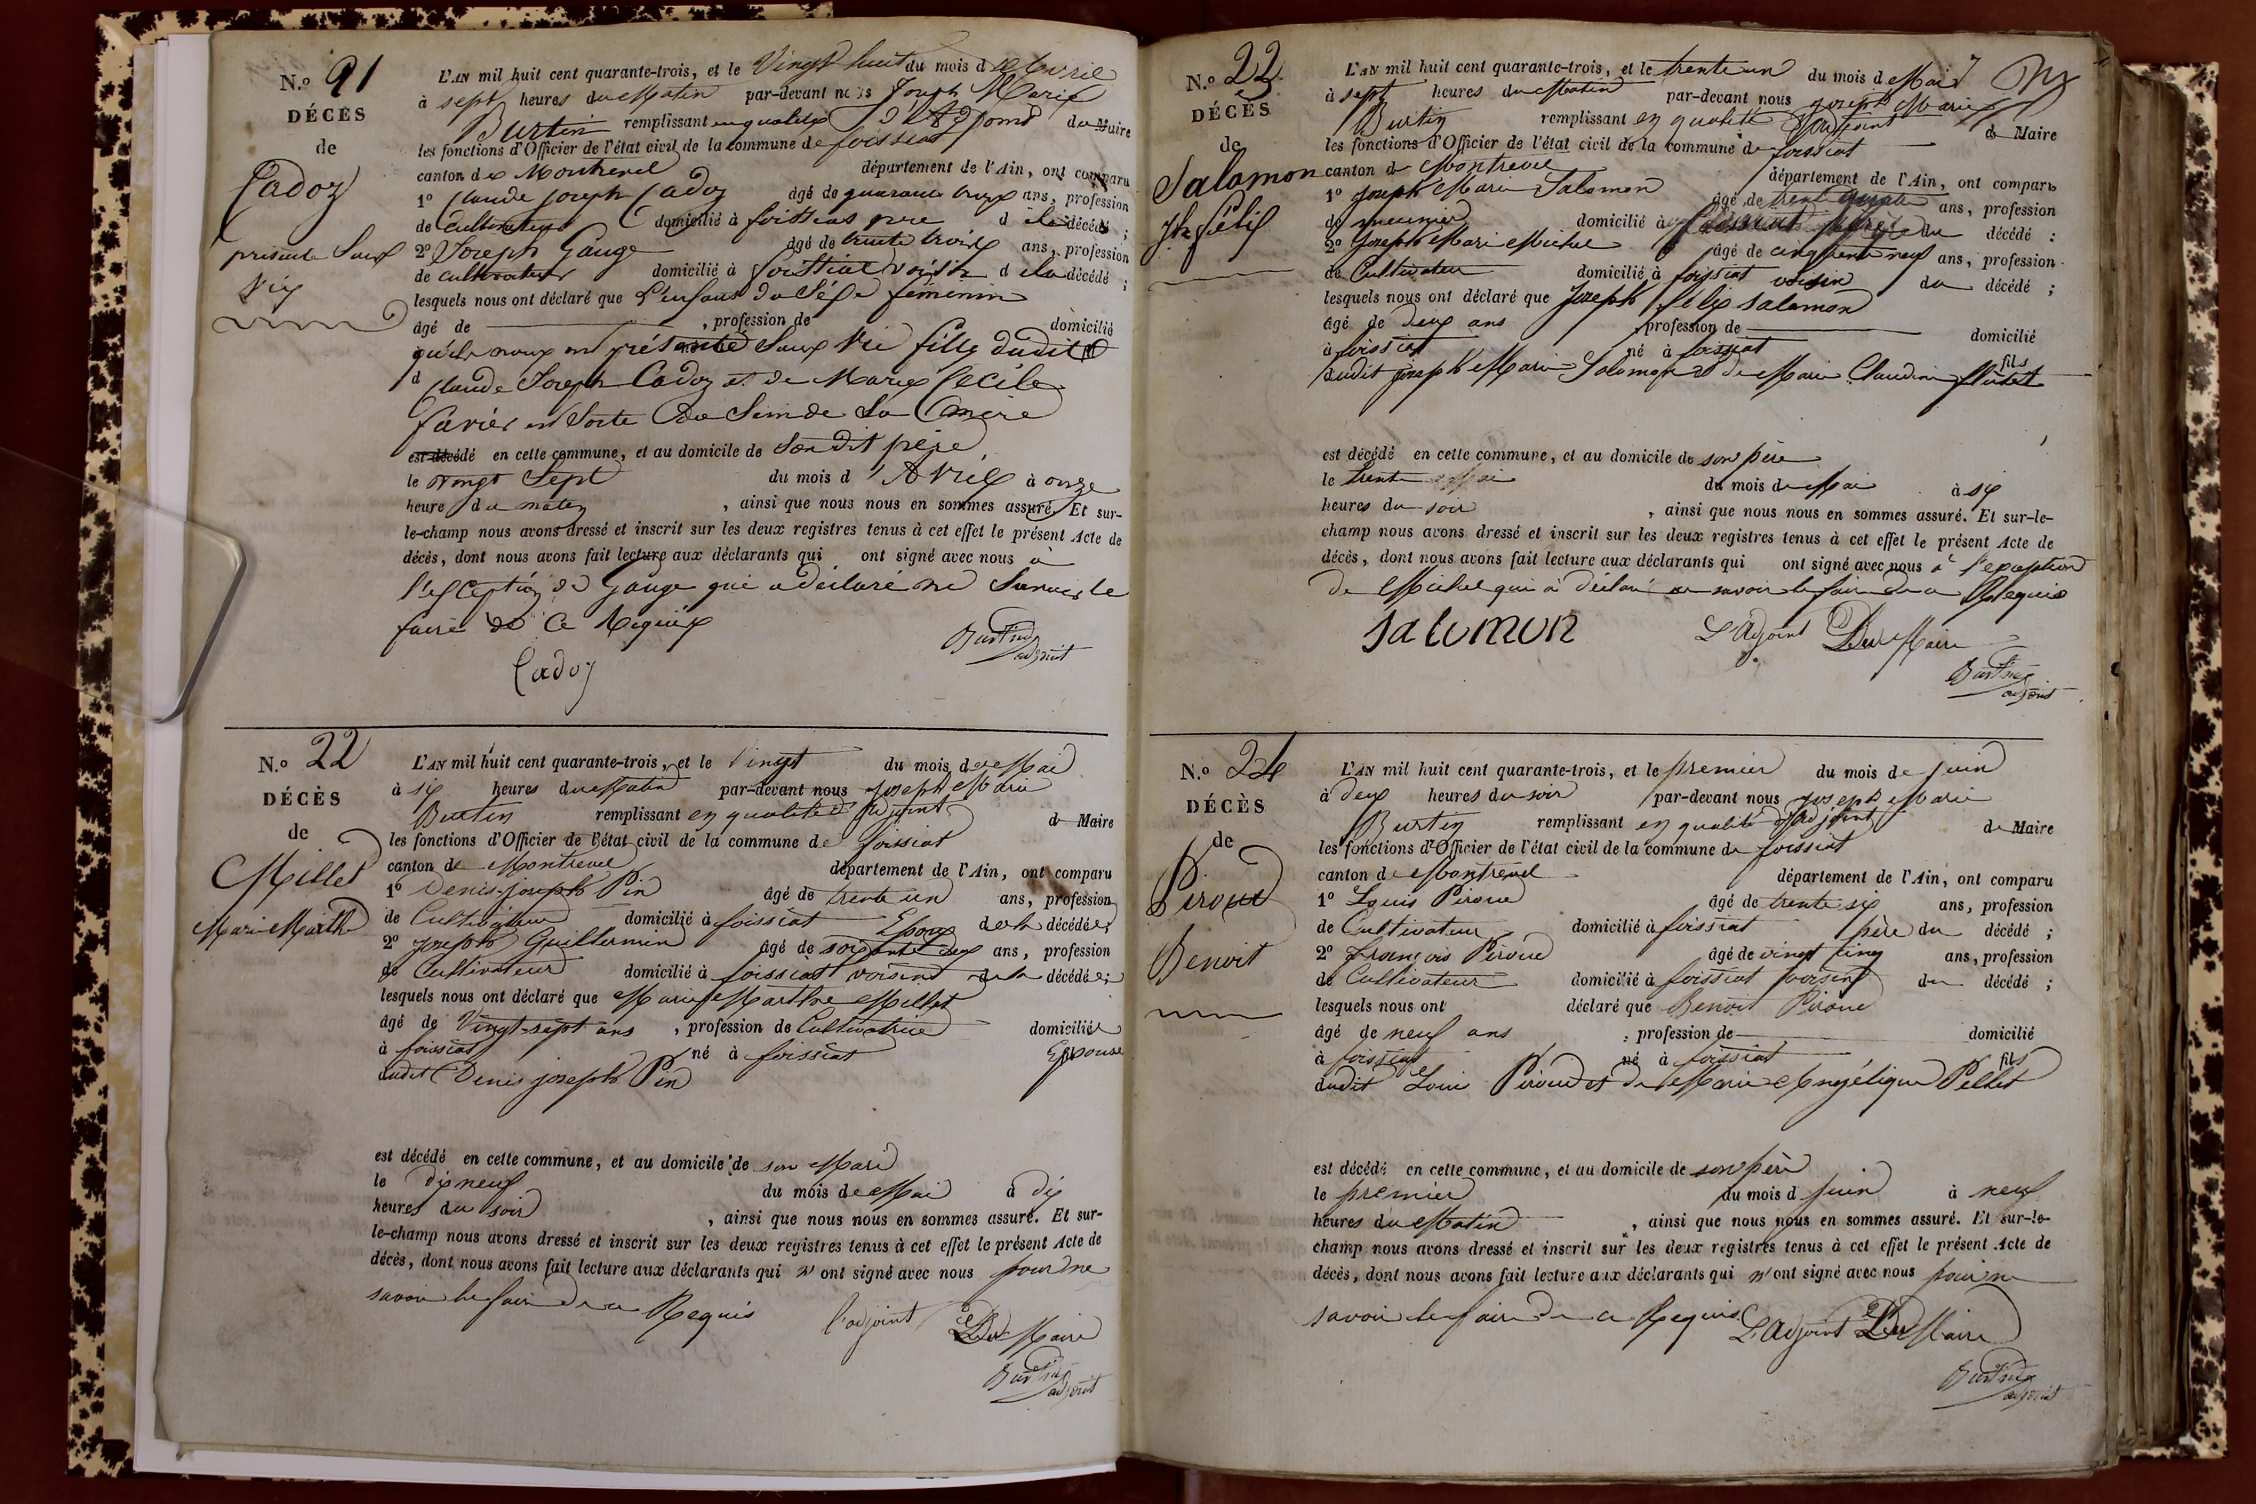 N.o 21
DÉCÈS
de
Cadoz
présenté Sans
Vie
L'AN mil huit cent quarante-trois, et le Vingt huit du mois d'Avril
à sept heures du Matin par-devant nous Joseph Marie
Burtin remplissant en qualité d'Adjoint du Maire
les fonctions d'Officier de l'état civil de la commune de foissiat
canton de Montrevel département de l'Ain, ont comparu
1o Claude Joseph Cadoz âgé de quarante ans, profession
de Cultivateur domicilié à foissiat père d la décédé ;
2o Joseph Gauge âgé de trente trois ans, profession
de cultivateur domicilié à foissiat voisin d la décédé ;
lesquels nous ont déclaré que L'enfant du Séxe féminin
âgé de , profession de domicilié
qu'ils nous ont présenté Sans Vie fille dudit
Claude Joseph Cadoz et de Marie Cécile
favier est Sorte du Sein de Sa mère
est décédé en cette commune, et au domicile de Son dit père
le Vingt Sept du mois d'Avril à onze
heure du matin , ainsi que nous nous en sommes assuré. Et sur-
le-champ nous avons dressé et inscrit sur les deux registres tenus à cet effet le présent Acte de
décès, dont nous avons fait lecture aux déclarants qui ont signé avec nous à
l'exception de Gauge qui a déclaré ne Savoir le
faire de ce Requis
Cadoz
Burtin
adjoint
N.o 22
DÉCÈS
de
Millet
Marie Marthe
L'AN mil huit cent quarante-trois, et le Vingt du mois de Mai
à six heures du Matin par-devant nous Joseph Marie
Burtin remplissant en qualité d'adjoint de Maire
les fonctions d'Officier de l'état civil de la commune de foissiat
canton de Montrevel département de l'Ain, ont comparu
1o Denis joseph Pin âgé de trente un ans, profession
de Cultivateur domicilié à foissiat Epoux de la décédée ;
2o joseph Guillermin âgé de soixante ans, profession
de Cultivateur domicilié à foissiat voisin de la décédée ;
lesquels nous ont déclaré que Marie Marthe Millet
âgé de Vingt-sept ans , profession de Cultivatrice domiciliée
à foissiat né à foissiat Epouse
dudit Denis joseph Pin
est décédé en cette commune, et au domicile de son Mari
le dix neuf du mois de Mai à dix
heures du soir , ainsi que nous nous en sommes assuré. Et sur-
le-champ nous avons dressé et inscrit sur les deux registres tenus à cet effet le présent Acte de
décès, dont nous avons fait lecture aux déclarants qui n'ont signé avec nous pour ne
savoir le faire de ce Requis
l'adjoint Du Maire
Burtin
adjoint
N.o 23
DÉCÈS
de
Salomon
Jh félix
L'AN mil huit cent quarante-trois, et le trente un du mois de Mai
à sept heures du Matin par-devant nous joseph Marie
Burtin remplissant en qualité d'adjoint de Maire
les fonctions d'Officier de l'état civil de la commune de foissiat
canton de Montrevel département de l'Ain, ont comparu
1o joseph Marie Salomon âgé de trente quatre ans, profession
de meunier domicilié à foissiat père du décédé :
2o Joseph Marie Michel âgé de cinquante neuf ans, profession
de Cultivateur domicilié à foissiat voisin du décédé ;
lesquels nous ont déclaré que Joseph félix salomon
âgé de deux ans , profession de domicilié
à foissiat né à foissiat fils
dudit joseph Marie Salomon et de Marie Claudine
est décédé en cette commune, et au domicile de son père
le trente du mois de Mai à six
heures du soir , ainsi que nous nous en sommes assuré. Et sur-le-
champ nous avons dressé et inscrit sur les deux registres tenus à cet effet le présent Acte de
décès, dont nous avons fait lecture aux déclarants qui ont signé avec nous à l'exception
de Michel qui a déclaré ne savoir le faire de ce Requis
salomon L'Adjoint Du Maire
Burtin
adjoint
N.o 24
DÉCÈS
de
Piroud
Benoit
L'AN mil huit cent quarante-trois, et le premier du mois de juin
à deux heures du soir par-devant nous joseph Marie
Burtin remplissant en qualité d'adjoint de Maire
les fonctions d'Officier de l'état civil de la commune de foissiat
canton de Montrevel département de l'Ain, ont comparu
1o Louis Piroud âgé de trente six ans, profession
de Cultivateur domicilié à foissiat père du décédé ;
2o françois Piroud âgé de vingt cinq ans, profession
de Cultivateur domicilié à foissiat voisin du décédé ;
lesquels nous ont déclaré que Benoit Piroud
âgé de neuf ans , profession de domicilié
à foissiat né à foissiat fils
dudit Loui Piroud et de Marie Angélique Pellet
est décédé en cette commune, et au domicile de son père
le premier du mois d juin à neuf
heures du Matin , ainsi que nous nous en sommes assuré. Et sur-le-
champ nous avons dressé et inscrit sur les deux registres tenus à cet effet le présent Acte de
décès, dont nous avons fait lecture aux déclarants qui n'ont signé avec nous pour ne
savoir le faire de ce Requis L'Adjoint Du Maire
Burtin
adjoint